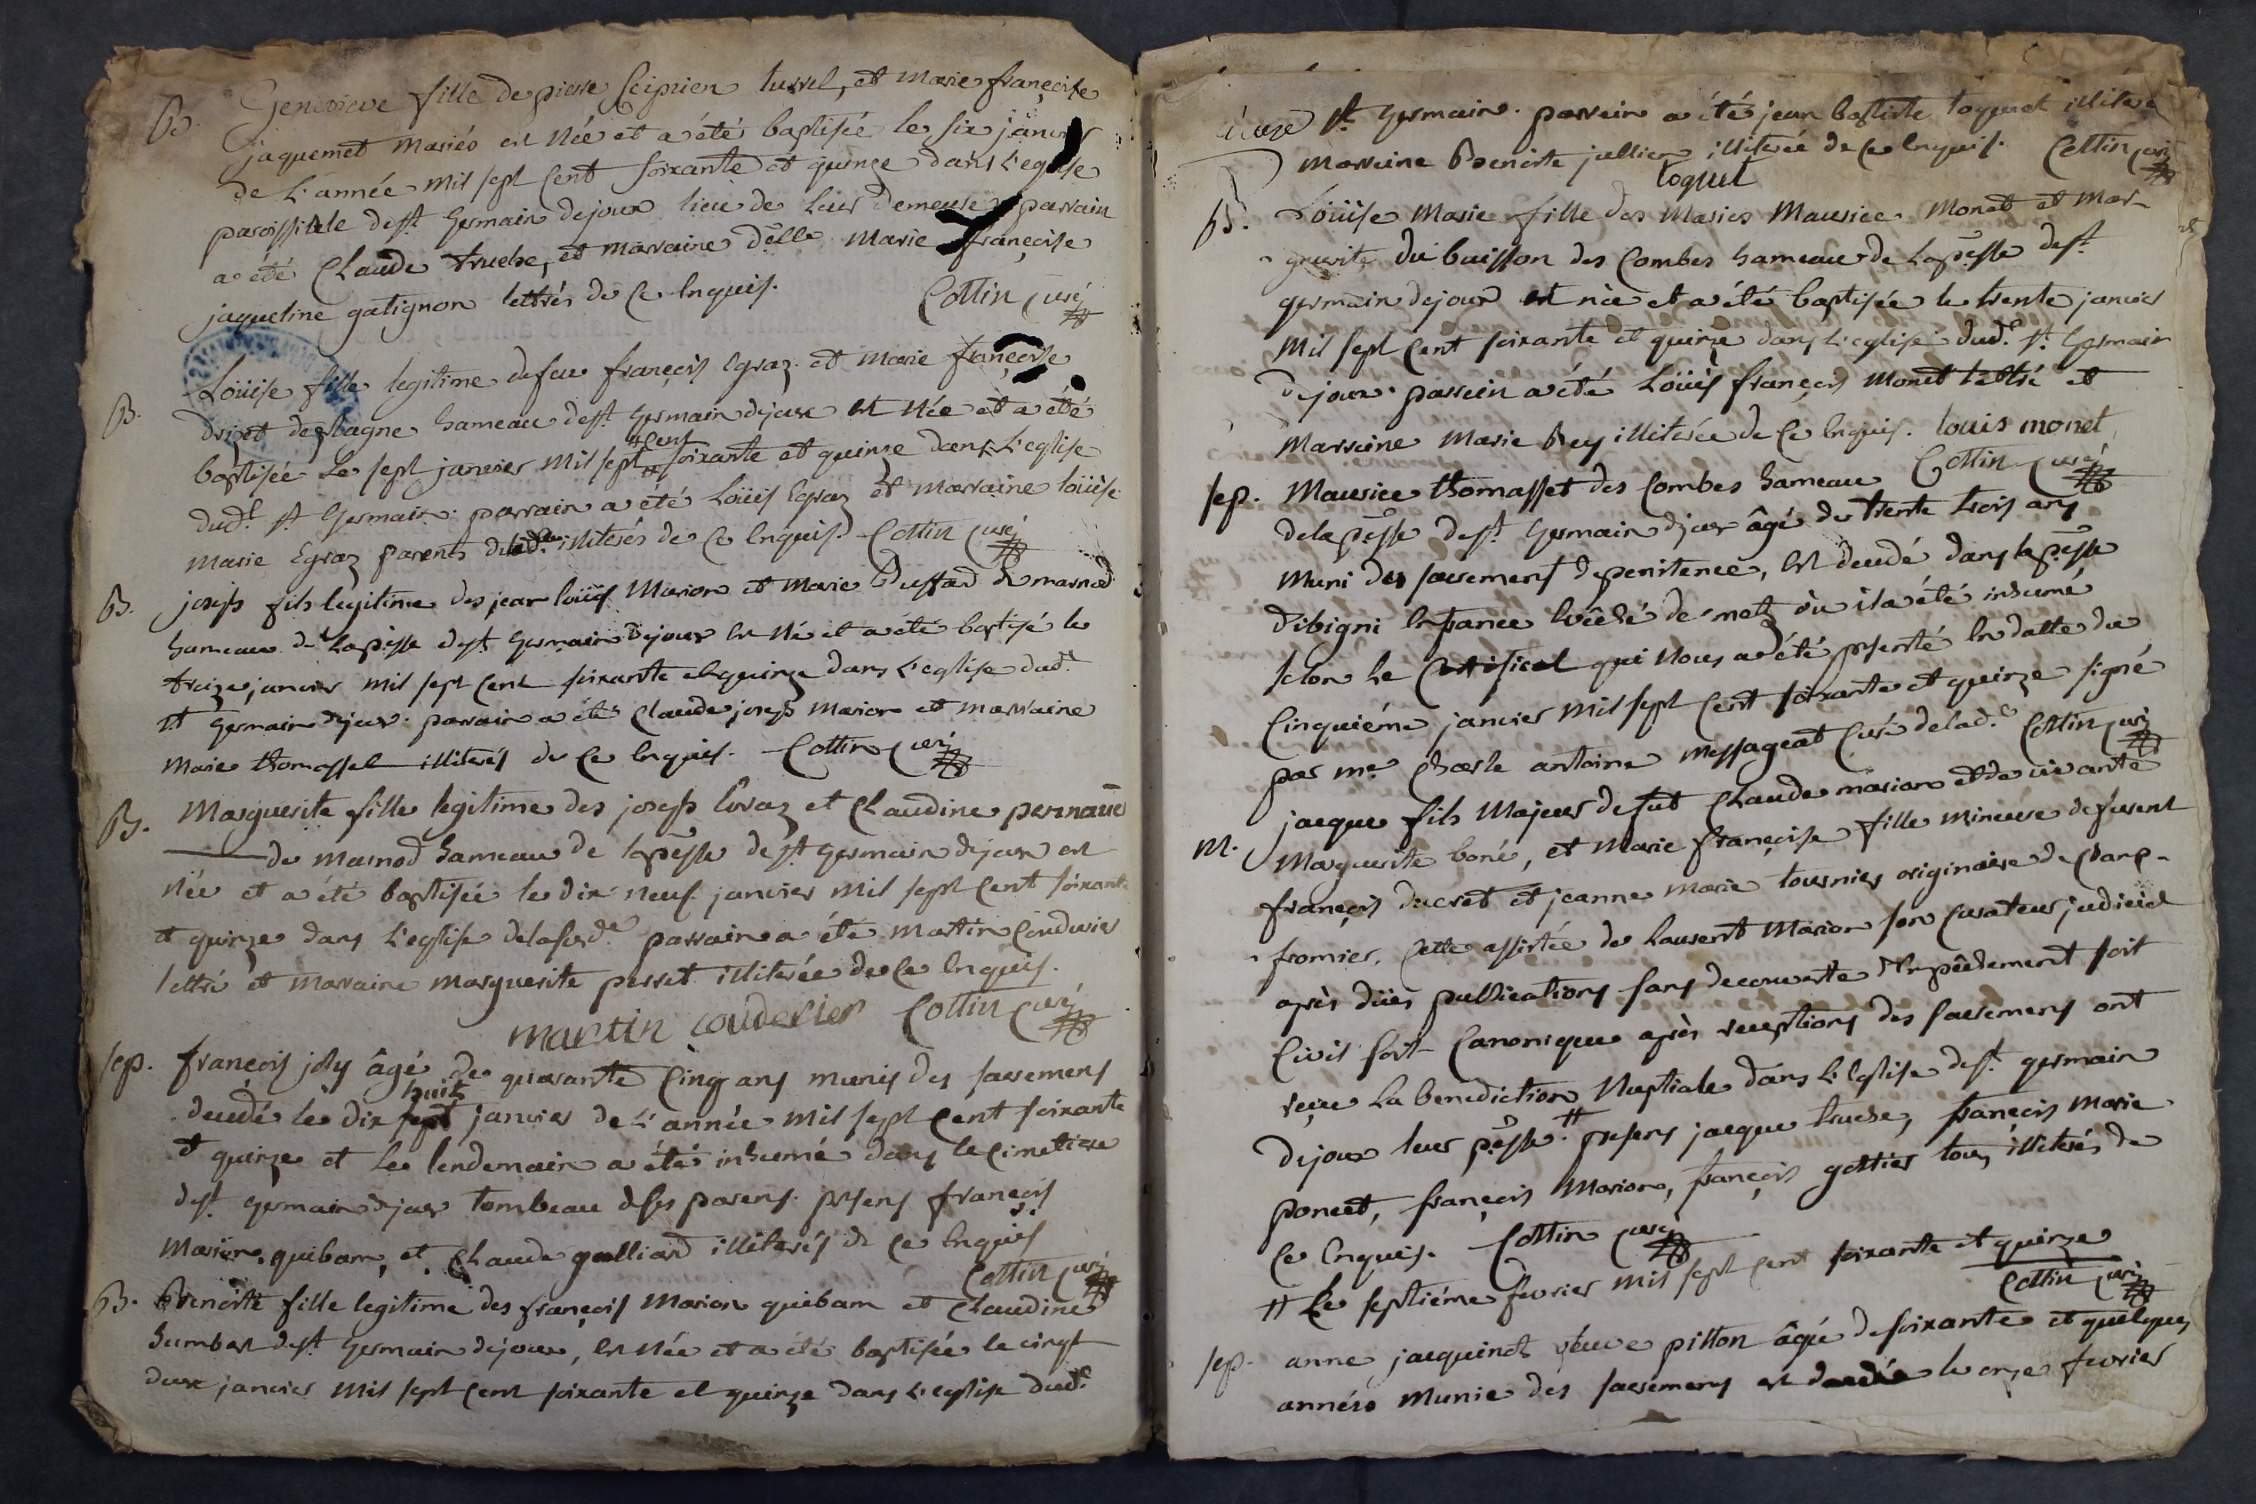 B. Genevieve fille de pierre Ciprien turrel, et marie françoise
jaquemet mariés est née et a été baptisée le six janvier
de l'année mil sept cent soixante et quinze dans l'eglise
paroissiale de st germain dejoux lieu de leur demeure parrain
a été Claude truche, et marraine delle marie françoise
jaqueline gatignon lettrés de ce enquis. Cottin curé
B. Loüise fille legitime de feu françois Egraz et marie françoise
de plagne hameau de st germain dejoux est née et a été
baptisée le sept janvier mil sept cent soixante et quinze dans l'eglise
dud. st germain. parrain a été Loüis Egraz et marraine loüise
marie Egraz parents illiterés de ce enquis. Cottin curé
B. joseph fils legitime des jean loüis marion et marie Dussard de marnod
hameau de la psse de st germain dejoux est né et a été baptisé le
treize janvier mil sept cent soixante et quinze dans l'eglise dud.
st germain dejoux. parrain a été Claude joseph marion et marraine
marie thomasset illiterés de ce enquis. Cottin curé
B. Marguerite fille legitime des joseph Evraz et Claudine
de marnod hameau de la psse de st germain dejoux est
née et a été baptisée le dix neuf janvier mil sept cent soixante
et quinze dans l'eglise de la susde parrain a été martin Coudurier
lettré et marraine marguerite perret illiterée de ce enquis.
martin couderier Cottin curé
sep. françois joly âgé de quarante cinq ans munis des sacremens
decedé le dix sept huit janvier de l'année mil sept cent soixante
et quinze et le lendemain a été inhumé dans le cimetiere
de st germain dejoux tombeau de ses parens. presens françois
marion quibam, et Claude galliard illiterés de ce enquis
Cottin curé
B. Benoite fille legitime des françois marion quibam et Claudine
humbert de st germain dejoux, est née et a été baptisée le vingt
deux janvier mil sept cent soixante et quinze dans l'eglise dud.
st germain. parrain a été jean baptiste toquet illiteré
marraine Benoite jullien illiterée de ce enquis. Cottin curé
toquet
B. Loüise marie fille des mariés maurice monet et mar-
guerite du buisson des Combes hameau de la psse de st
germain dejoux est née et a été baptisée le trente janvier
mil sept cent soixante et quinze dans l'eglise dud. st germain
dejoux. parrain a été Loüis françois monet lettré et
marraine marie Rey illiterée de ce enquis. louis monet
Cottin curé
sep. Maurice thomasset des Combes hameau
de la psse de st germain dejoux âgé de trente trois ans
muni des sacremens de penitence, est decedé dans la psse
d'ibigni en france Evêché de metz où il a été inhumé
selon le Certificat qui nous a été presenté en datte du
cinquiéme janvier mil sept cent soixante et quinze signé
par me Charle antoine messageat curé de lad. Cottin curé
m. jacque fils majeur de fut Claude marion et de vivante
marguerite boné, et marie françoise fille mineure de furent
françois ducret et jeanne marie tournier originaire de champ-
fromier, cette assistée de laurent marion son curateur judiciel
après düës publications sans decouverte d'empêchement soit
civil soit canonique après receptions des sacremens ont
reçu la benediction nuptiale dans l'eglise de st germain
dejoux leur psse. # presens jacque truche, françois marie
poncet, françois marion, françois gottier tous illiterés de
ce enquis. Cottin curé
# le septiéme fevrier mil sept cent soixante et quinze
Cottin curé
sep. anne jacquinot veuve pitton âgée de soixante et quelques
années munie des sacremens est decedée le onze fevrier